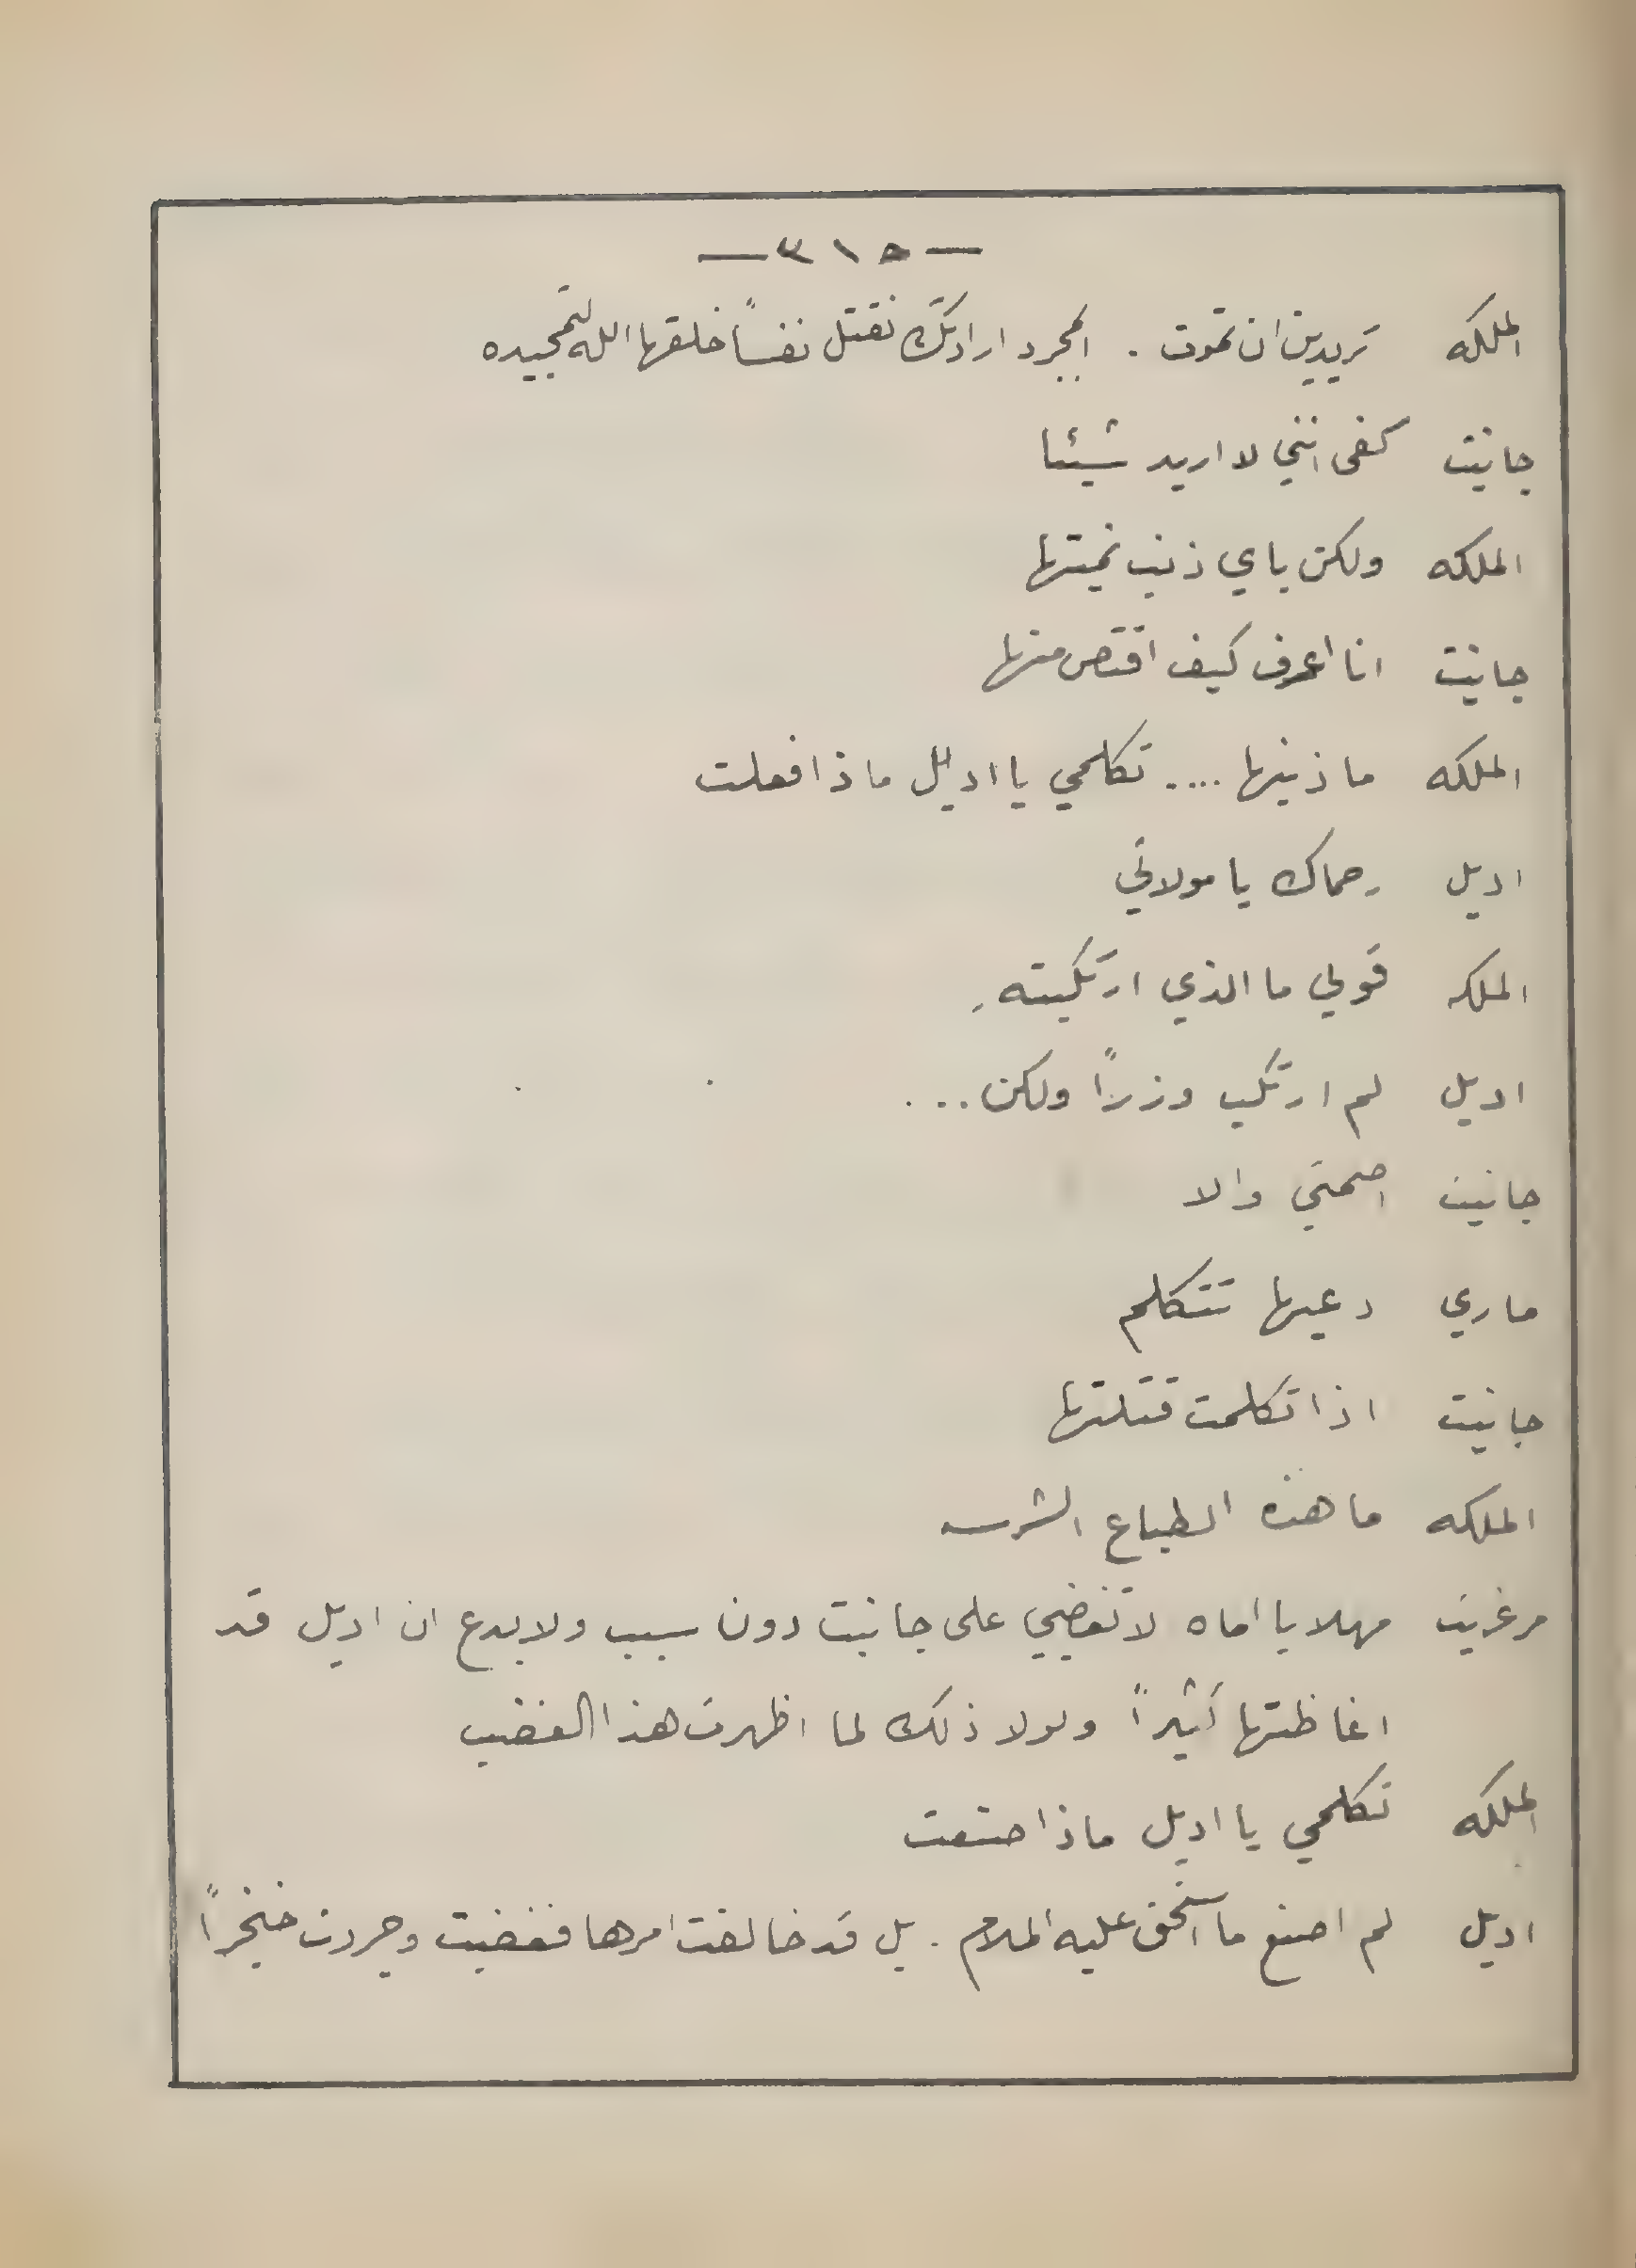 — ٣١٥ —
الملكه تريدين ان تموت . المجرد ارادتك نقتل نفساً خلقها الله لتمجيده
جانيت كفى انني لا اريد شيئا
الملكه ولكن باي ذنب نميتها
جانيت انا اعرف كيف اقتص منها
الملكه ما ذنبها .... تكلمي يا اديل ماذا فعلت
اديل رحماك يا مولاتي
الملكه قولي ما الذي ارتكبته
اديل لم ارتكب وزراً ولكن ...
جانيت اصمتي والا
ماري دعيها تتكلم
جانيت اذا تكلمت قتلتها
الملكه ما هذه الطباع الشرسه
مرغريت مهلا يا اماه لا تغضبي على جانيت دون سبب ولا بدع ان اديل قد
اغاظتها كثيراً ولولا ذلك لما اظهرت هذا الغضب
الملكه تكلمي يا اديل ماذا صنعت
اديل لم اصنع ما استحق عليه الملام . بل قد خالفت امرها فغضبت وجردت خنجراً